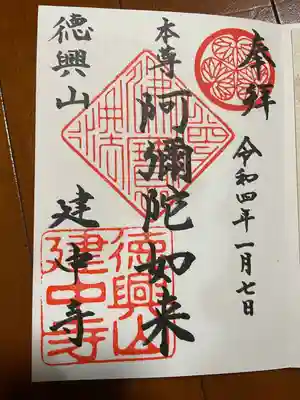 奉拝
令和四年一月七日
本尊
阿彌陀如来
德興山
建中寺
德興山
建中寺